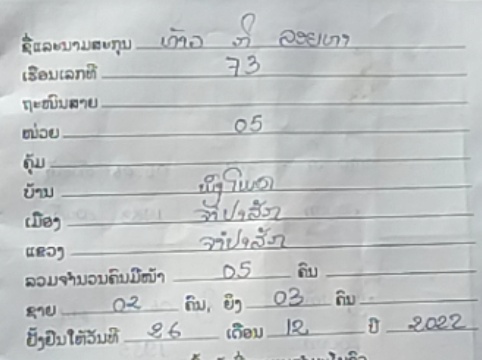 ຊື່ແລະນາມສະກຸນ ທ້າວ ກີ
ເຮືອນເລກທີ 73
ຖະໜົນສາຍ
ໜ່ວຍ 05
ຄຸ້ມ
ບ້ານ
ເມືອງ ຈຳປາສັກ
ແຂວງ ຈຳປາສັກ
ລວມຈຳນວນຄົນມີໜ້າ 05 ຄົນ
ຊາຍ 02 ຄົນ, ຍິງ 03 ຄົນ
ຢັ້ງຢືນໃຫ້ວັນທີ 26 ເດືອນ 12 ປີ 2022